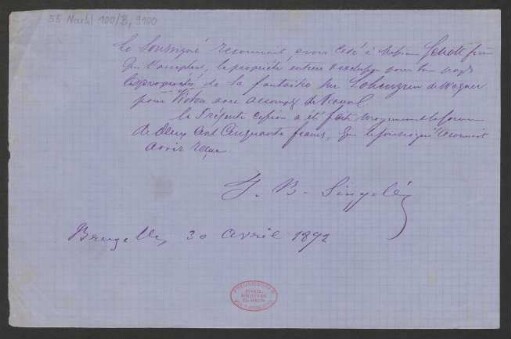 55 Nachl 100/B, 9100
Le Soussigné reconnait avoir cédé à Messieurs Schott frères
De Bruxelles, la propriété entière pour tous pays
de la fantaisie sur Lohengrin de Wagner
pour Violon avec accomp. de Piano
La Présente cession a été faite moyennant la somme
de deux cent Cinquante francs, que le soussigné reconnait
avoir reçue
J. B. Singelée
Bruxelles, 30 avril 1872